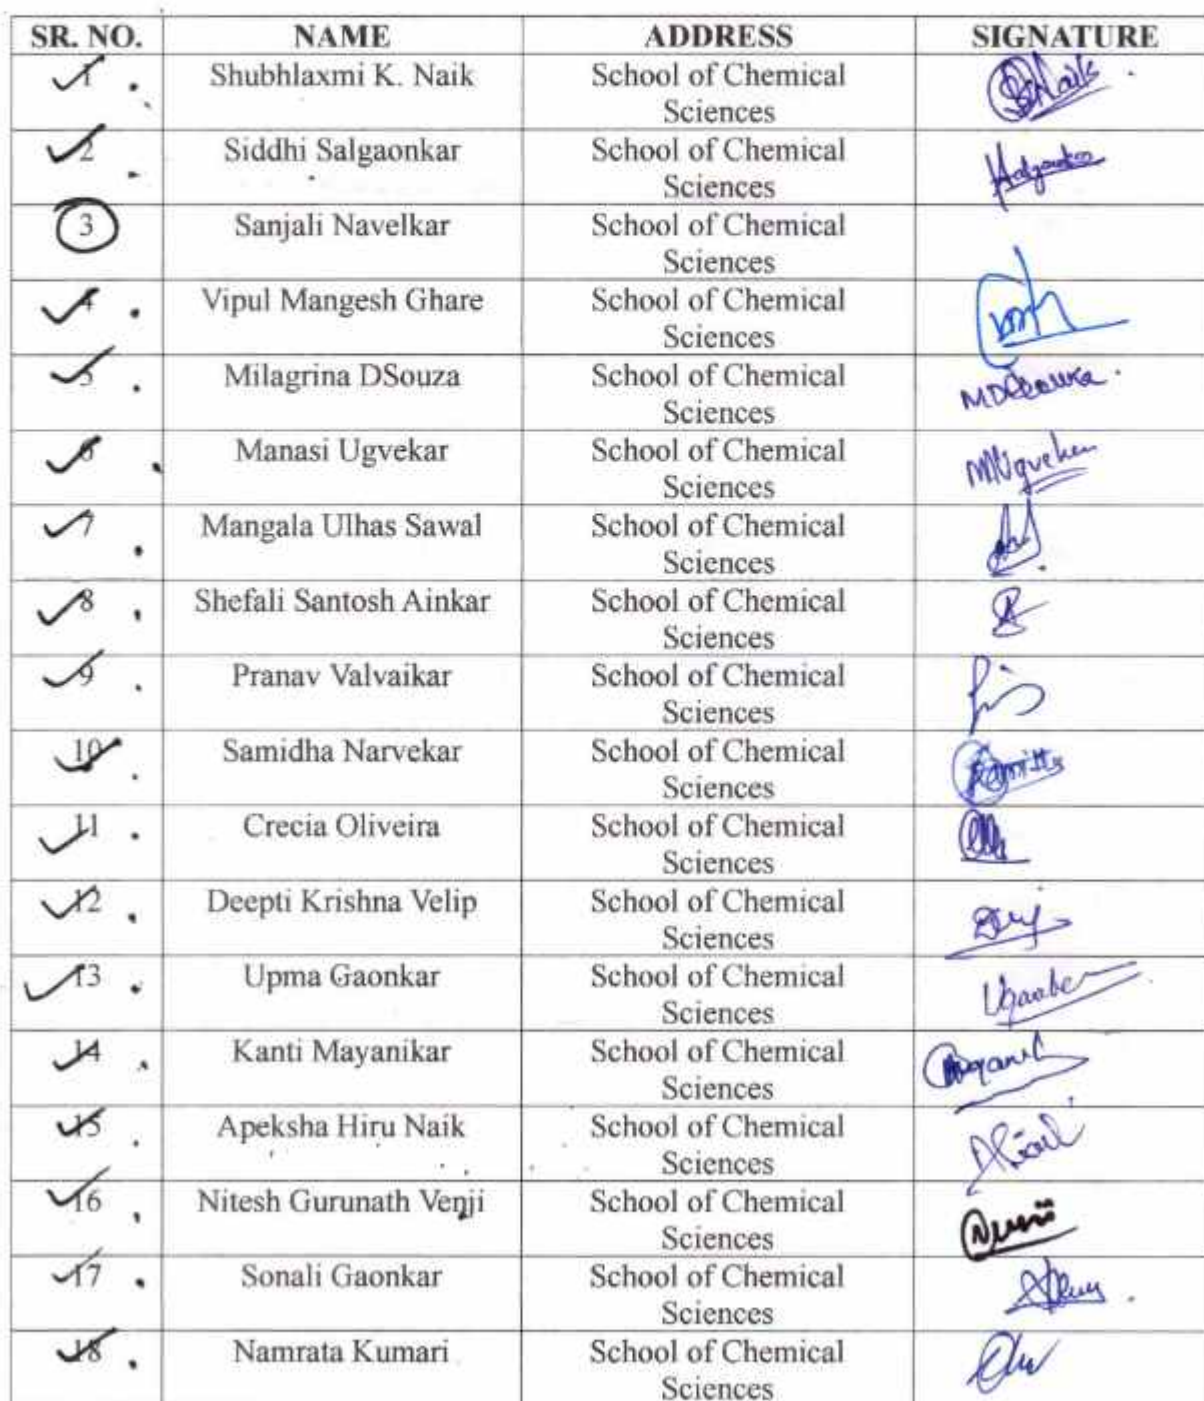 SR. NO. NAME ADDRESS SIGNATURE
1 Shubhlaxmi K. Naik School of Chemical
Sciences
2 Siddhi Salgaonkar School of Chemical
Sciences
3 Sanjali Navelkar School of Chemical
Sciences
4 Vipul Mangesh Ghare School of Chemical
Sciences
5 Milagrina DSouza School of Chemical
Sciences
6 Manasi Ugvekar School of Chemical
Sciences
7 Mangala Ulhas Sawal School of Chemical
Sciences
8 Shefali Santosh Ainkar School of Chemical
Sciences
9 Pranav Valvaikar School of Chemical
Sciences
10 Samidha Narvekar School of Chemical
Sciences
11 Crecia Oliveira School of Chemical
Sciences
12 Deepti Krishna Velip School of Chemical
Sciences
13 Upma Gaonkar School of Chemical
Sciences
14 Kanti Mayanikar School of Chemical
Sciences
15 Apeksha Hiru Naik School of Chemical
Sciences
16 Nitesh Gurunath Venji School of Chemical
Sciences
17 Sonali Gaonkar School of Chemical
Sciences
18 Namrata Kumari School of Chemical
Sciences